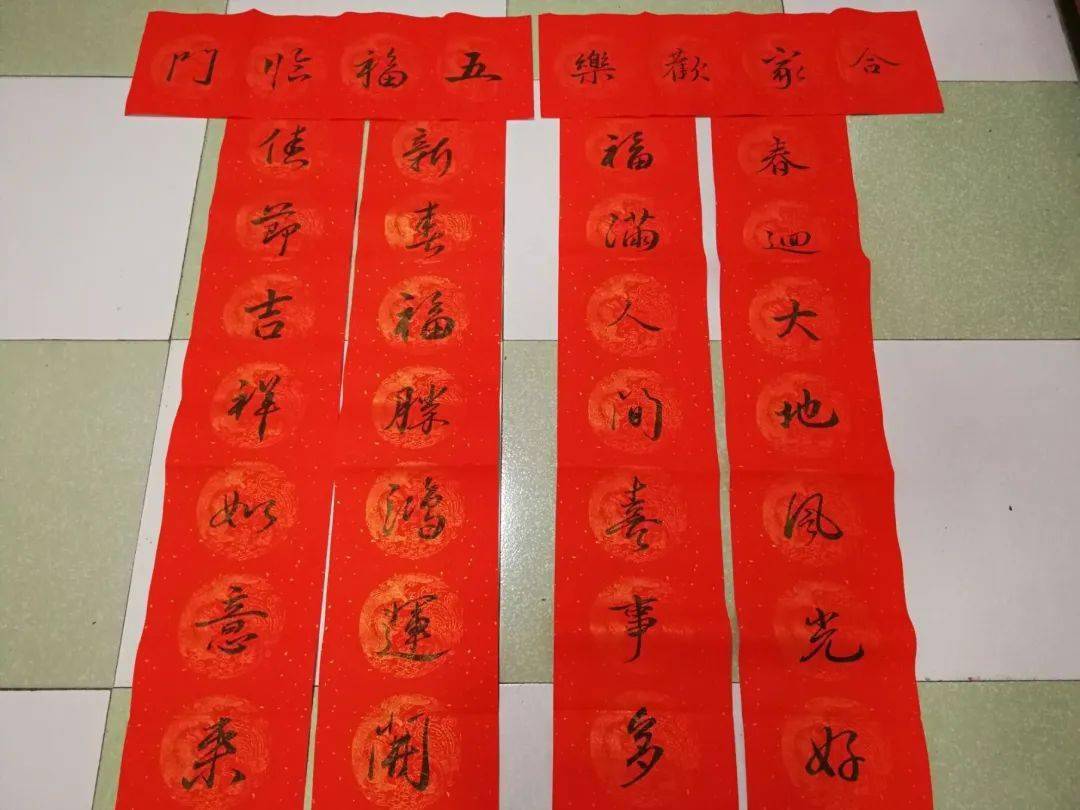 合家歡樂
春迴大地風光好
福滿人間喜事多
五福臨門
新春福勝鴻運開
佳節吉祥如意來